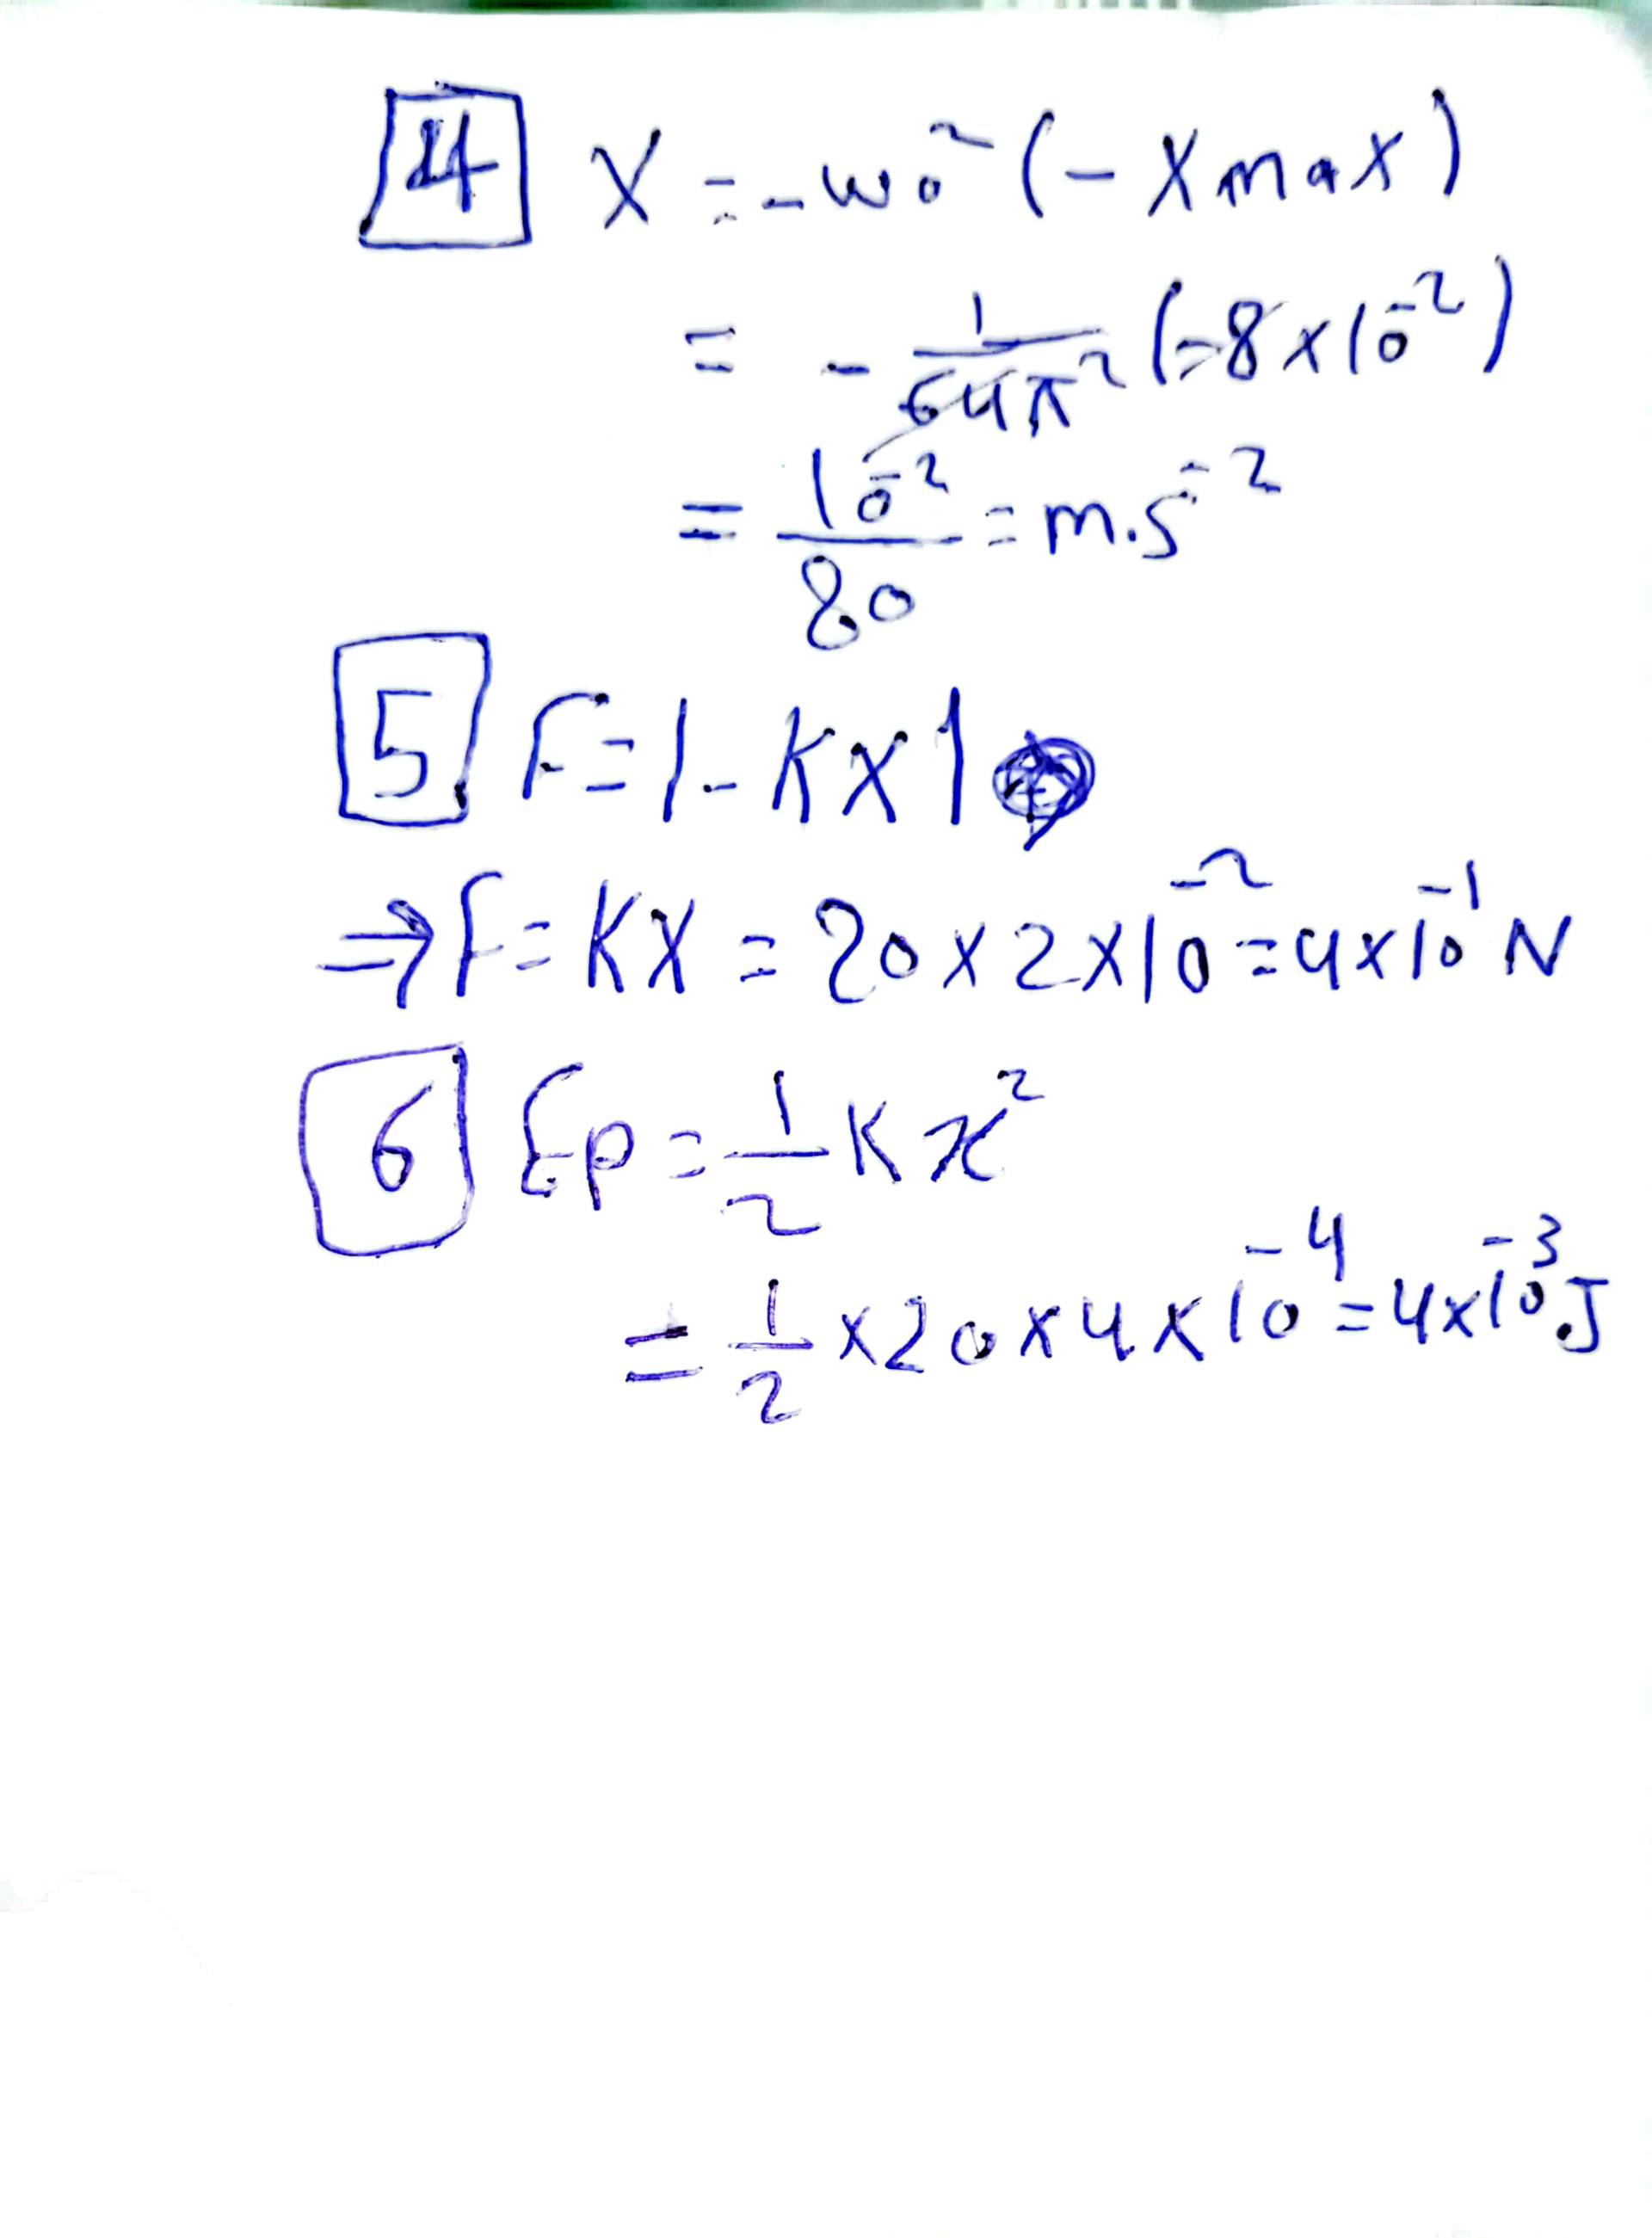 4 X = -ω₀² (- X max)
= - 1/64π² (-8 x 10⁻²)
= 10⁻²/80 = m.s⁻²
5 F = |- K X|
→ F = K X = 20 x 2 x 10⁻² = 4 x 10⁻¹ N
6 Ep = 1/2 K x²
= 1/2 x 20 x 4 x 10⁻⁴ = 4 x 10⁻³ J